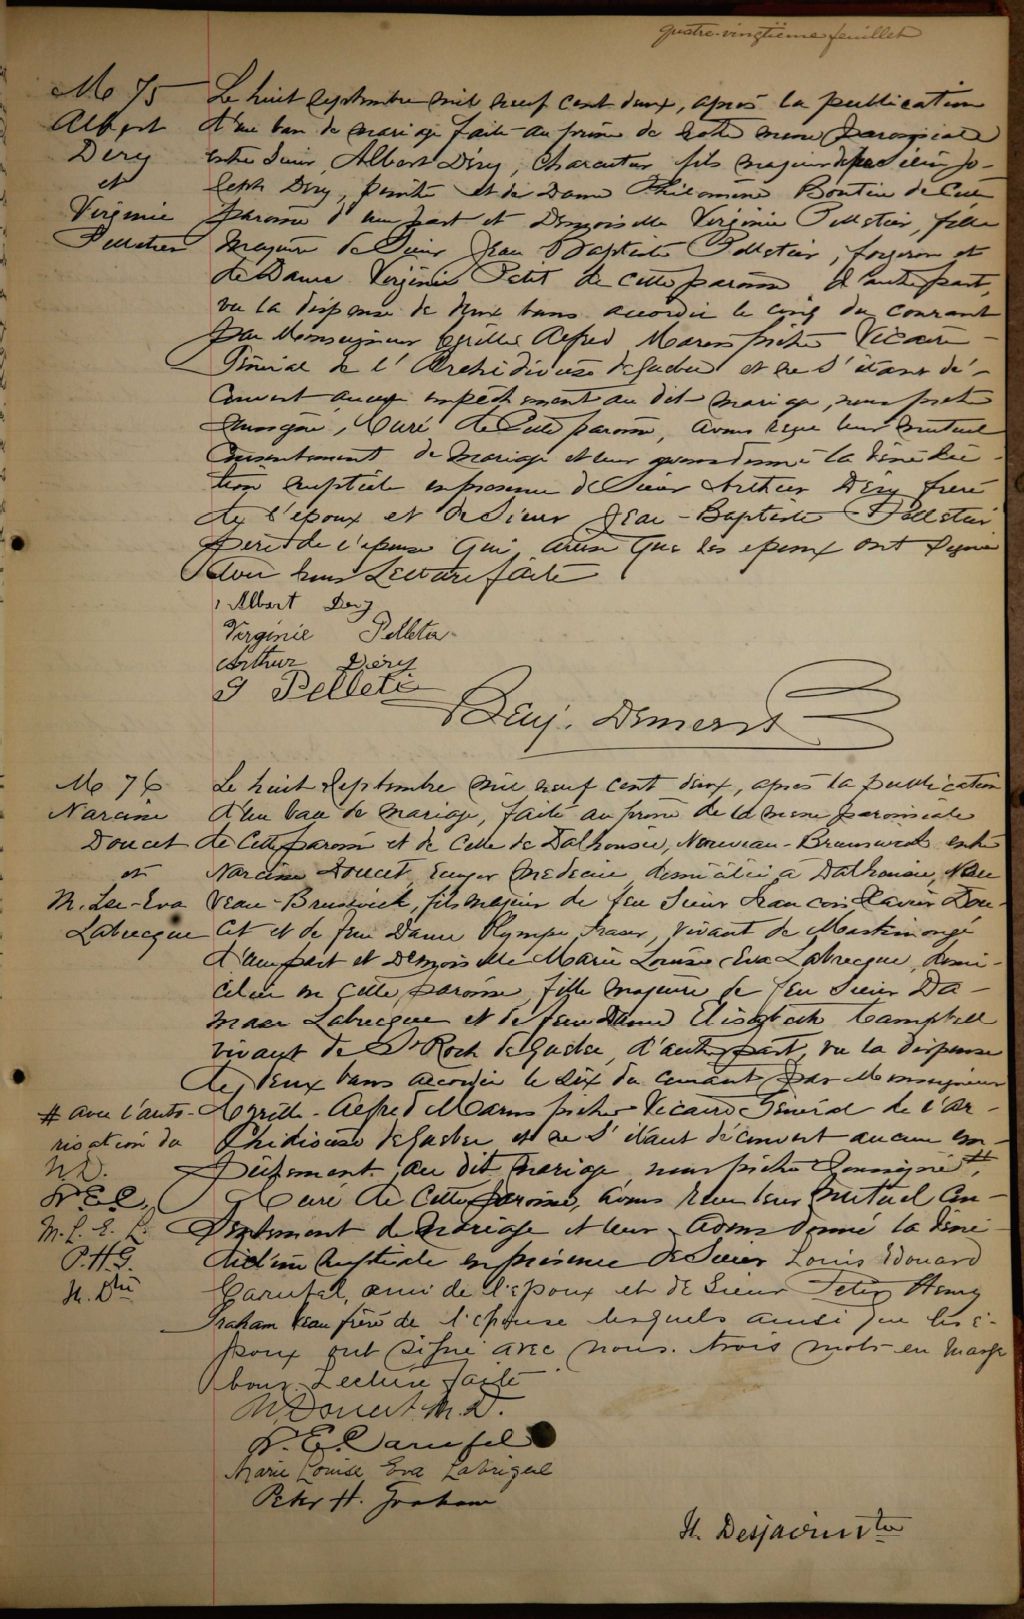 quatre-vingtième feuillet
M 75
Albert
Déry
et
Virginie
Pelletier
Le huit septembre mil neuf cent deux, après la publication
d'un ban de mariage faite au prône de notre messe paroissiale
entre Sieur Albert Déry, charcutier fils majeur de Sieur Jo-
seph Déry, peintre et de Dame Philomène Boutin de cette
paroisse d'une part et Demoiselle Virginie Pelletier, fille
majeure de Sieur Jean Baptiste Pelletier, forgeron et
de Dame Virginie Petit de cette paroisse d'autre part,
vu la dispense de deux bans accordée le cinq du courant
par Monseigneur Cyrille Alfred Marois prêtre Vicaire
Général de l'Archidiocèse de Québec et ne s'étant dé-
couvert aucun empêchement au dit mariage, nous prêtre
soussigné, Curé de cette paroisse, avons reçu leur mutuel
consentement de mariage et leur avons donné la bénédic-
tion nuptiale en presence de Sieur Arthur Déry frère
de l'époux et de Sieur Jean-Baptiste Pelletier
père de l'épouse qui ainsi que les epoux ont signé
avec nous Lecture faite
Albert Dery
Virginie Pelletier
Arthur Déry
J Pelletie
Benj. Demers
M 76
Narcisse
Doucet
et
M. Lse-Eva
Labrecque
Le huit septembre mil neuf cent deux, après la publication
d'un ban de mariage, faite au prône de la messe paroissiale
de cette paroisse et de celle de Dalhousie, Nouveau-Brunswick entre
Narcisse Doucet Ecuyer médecin, domicilié à Dalhousie, Nou
veau-Brunswick, fils majeur de feu Sieur Francois Xavier Dou-
cet et de feue Dame Olympe Fraser, vivant de Maskinongé
d'une part et Demoiselle Marie Louise Eva Labrecque, domi-
ciliée en cette paroisse, fille majeure de feu Sieur Da-
mase Labrecque et de feue Dame Elisabeth Campbell
vivant de St Roch de Québec, d'autre part, vu la dispense
de deux bans accordée le six du courant par Monseigneur
Cyrille-Alfred Marois prêtre Vicaire Général de l'Ar-
chidiocèse de Québec et ne s'étant découvert aucun em-
pêchement au dit mariage nous prêtre soussigné #,
Curé de cette paroisse, avons reçu leur mutuel con-
sentement de mariage et leur avons donné la béné-
diction nuptiale en présence de Sieur Louis Edouard
Carufel, ami de l'epoux et de Sieur Peter Henry
Graham beau frère de l'epouse lesquels ainsi que les é-
poux ont signé avec nous. trois mots en marge
bons. Lecture faite
# avec l'auto-
risation du
N.D.
L. E. C.
M. L. E. L.
P.H.G.
H. Dtre
N. Doucet M.D.
L. E. Carufel
Marie Louise Eva Labrèque
Peter H. Graham
H. Desjardins Ptre